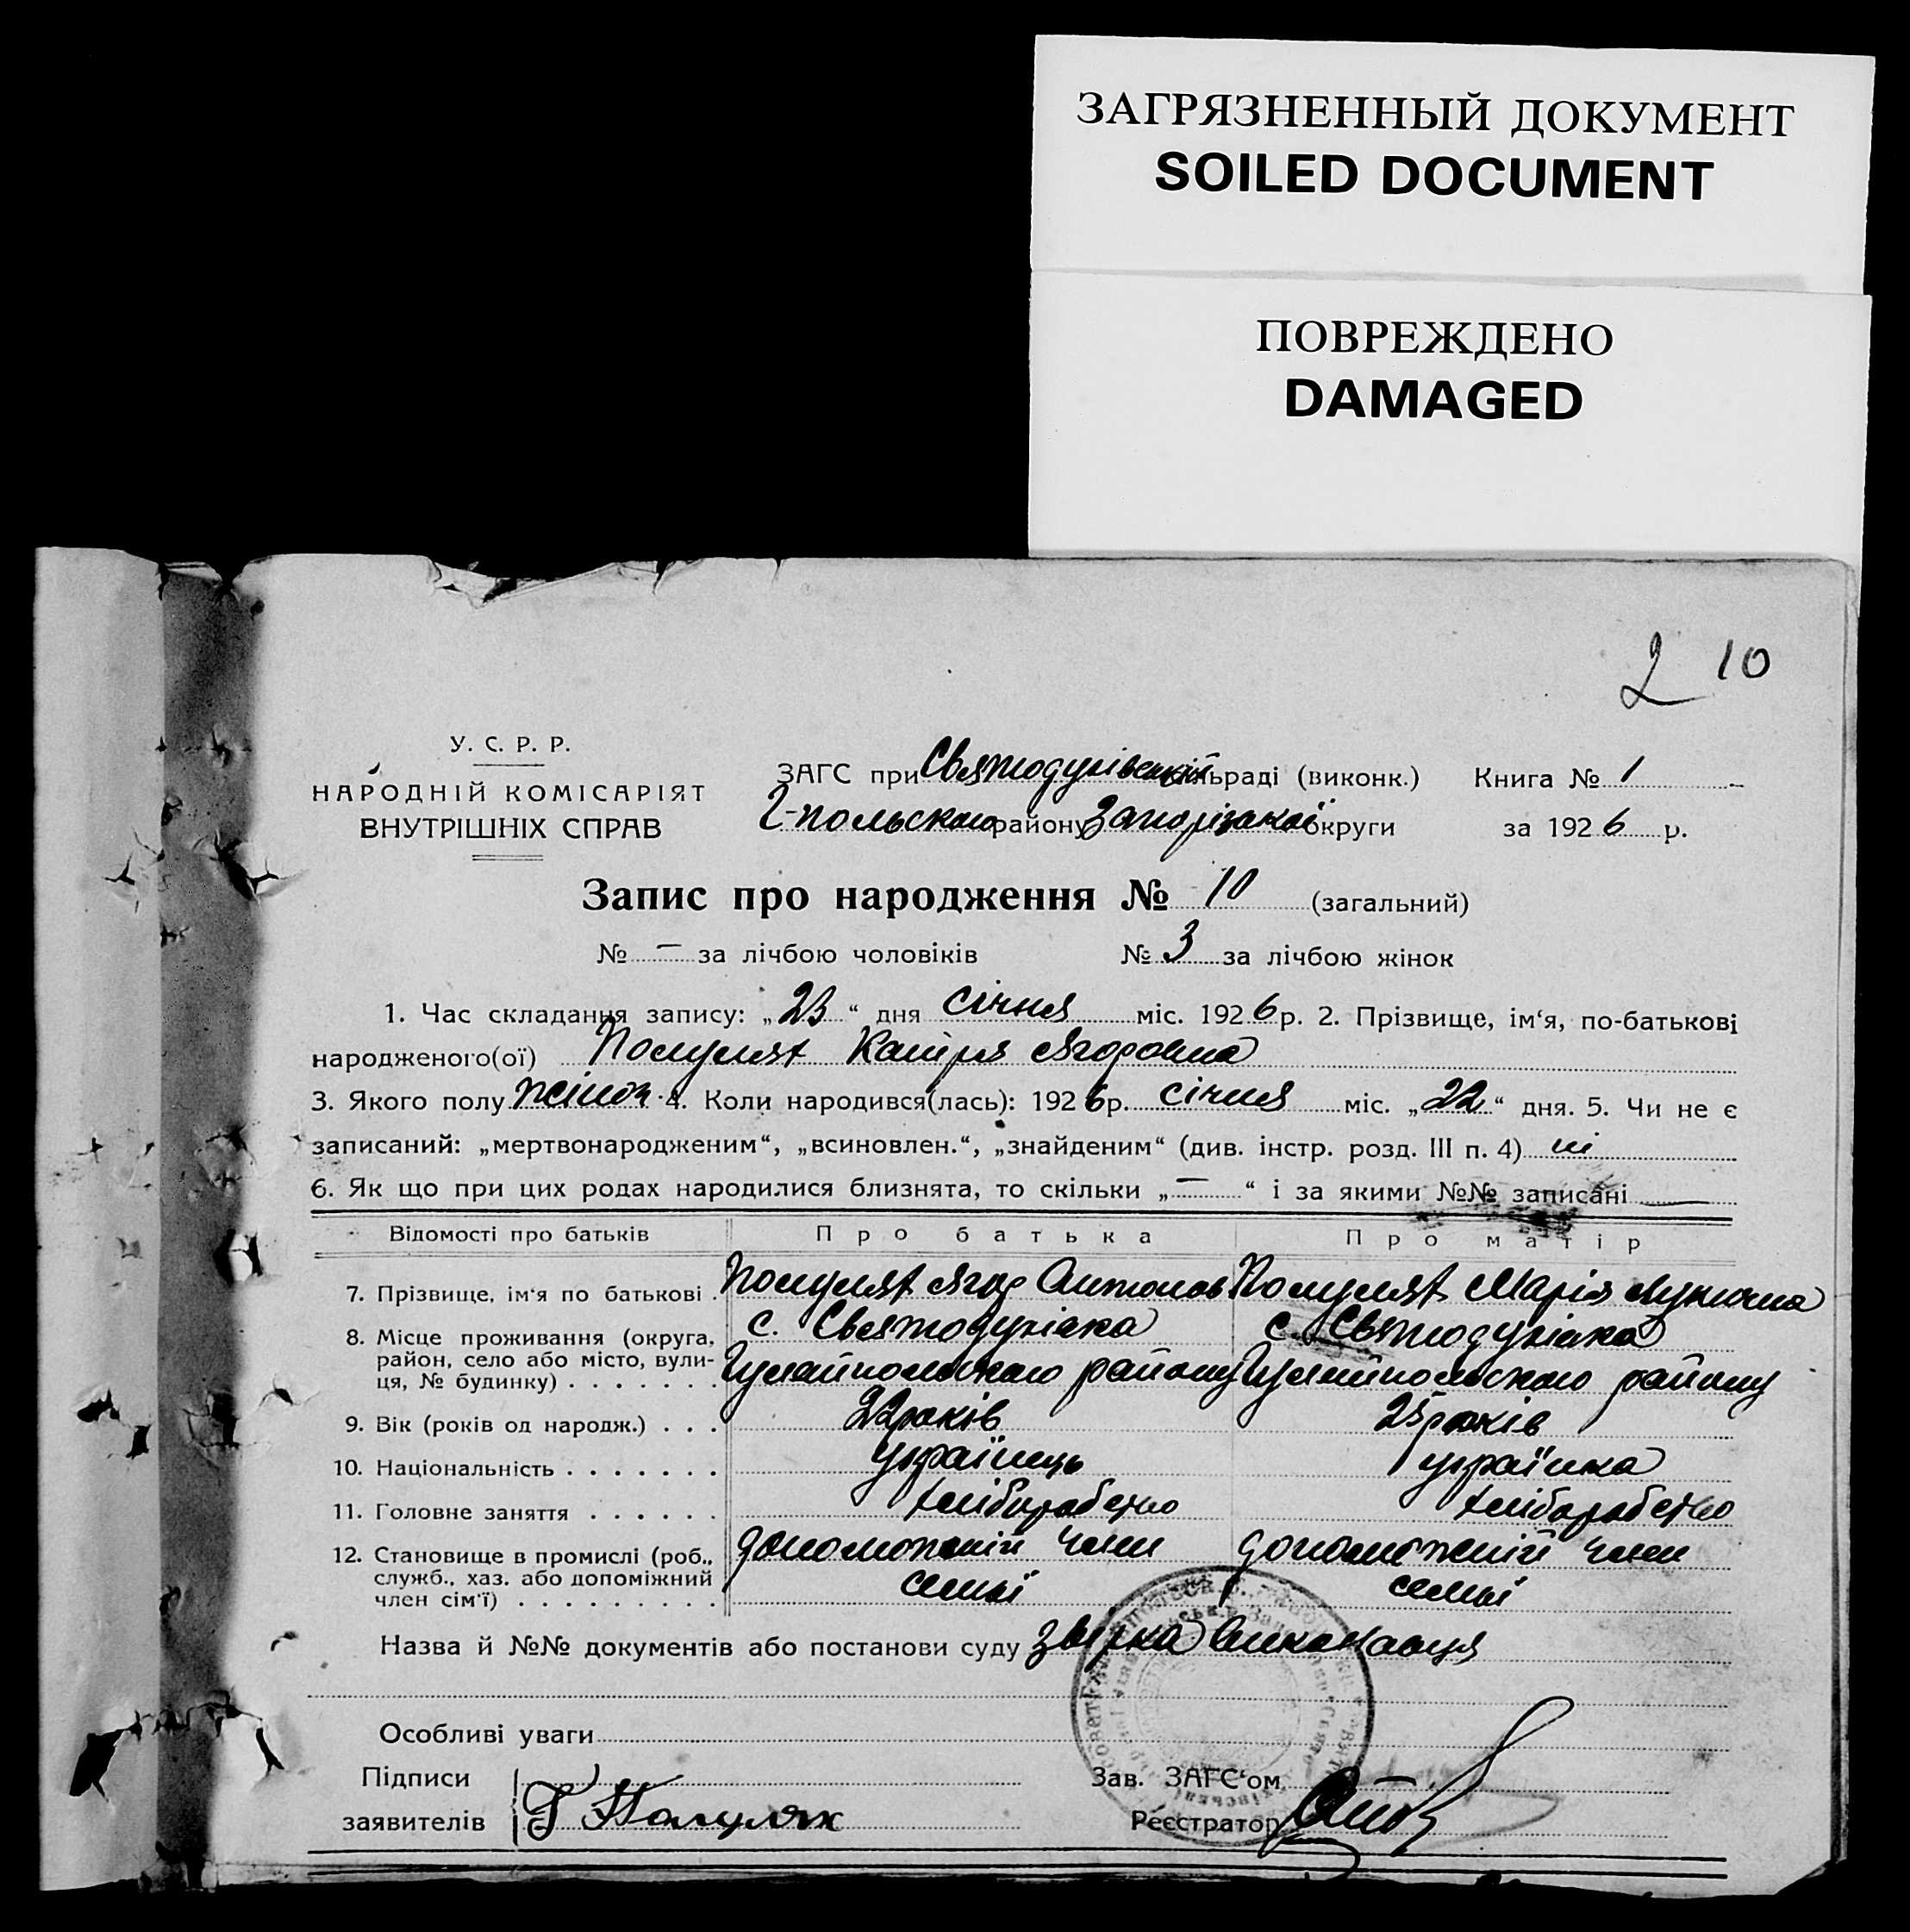 ЗАГРЯЗНЕННЫЙ ДОКУМЕНТ
SOILED DOCUMENT
ПОВРЕЖДЕНО
DAMAGED
2 10
У. С. Р. Р.
НАРОДНІЙ КОМІСАРІЯТ
ВНУТРІШНІХ СПРАВ
ЗАГС при Святодухівській сільраді (виконк.) Книга № 1
Г-польского району Запорізької округи за 1926 р.
Запис про народження № 10 (загальний)
№ — за лічбою чоловіків № 3 за лічбою жінок
1. Час складання запису: „23“ дня січня міс. 1926 р. 2. Прізвище, ім‘я, по-батькові
народженого(ої) Полулях Ягоровна
3. Якого полу жіноч. 4. Коли народився(лась): 1926 р. січня міс. „22“ дня. 5. Чи не є
записаний: „мертвонародженим“, „всиновлен.“, „знайденим“ (див. інстр. розд. III п. 4) ні
6. Як що при цих родах народилися близнята, то скільки „—“ і за якими №№ записані —
Відомості про батьків Про батька Про матір
7. Прізвище, ім‘я по батькові . Полулях Ягор Антонов Полулях Марія
8. Місце проживання (округа, район, село або місто, вули-ця, № будинку) . . . . . . . с. Святодухівка с. Святодухівка
Гуляйпольского району Гуляйпольского району
9. Вік (років од народж.) . . . 22 років 25 років
10. Національність . . . . . . . українець українка
11. Головне заняття . . . . . . хліборобство хліборобство
12. Становище в промислі (роб., служб., хаз. або допоміжний член сім‘ї) . . . . . . . . . допоможній член допоможній член
семьї семьї
Назва й №№ документів або постанови суду звірка виконавця
Особливі уваги
Підписи
заявителів Г Полулях
Зав. ЗАГС‘ом
Реєстратор